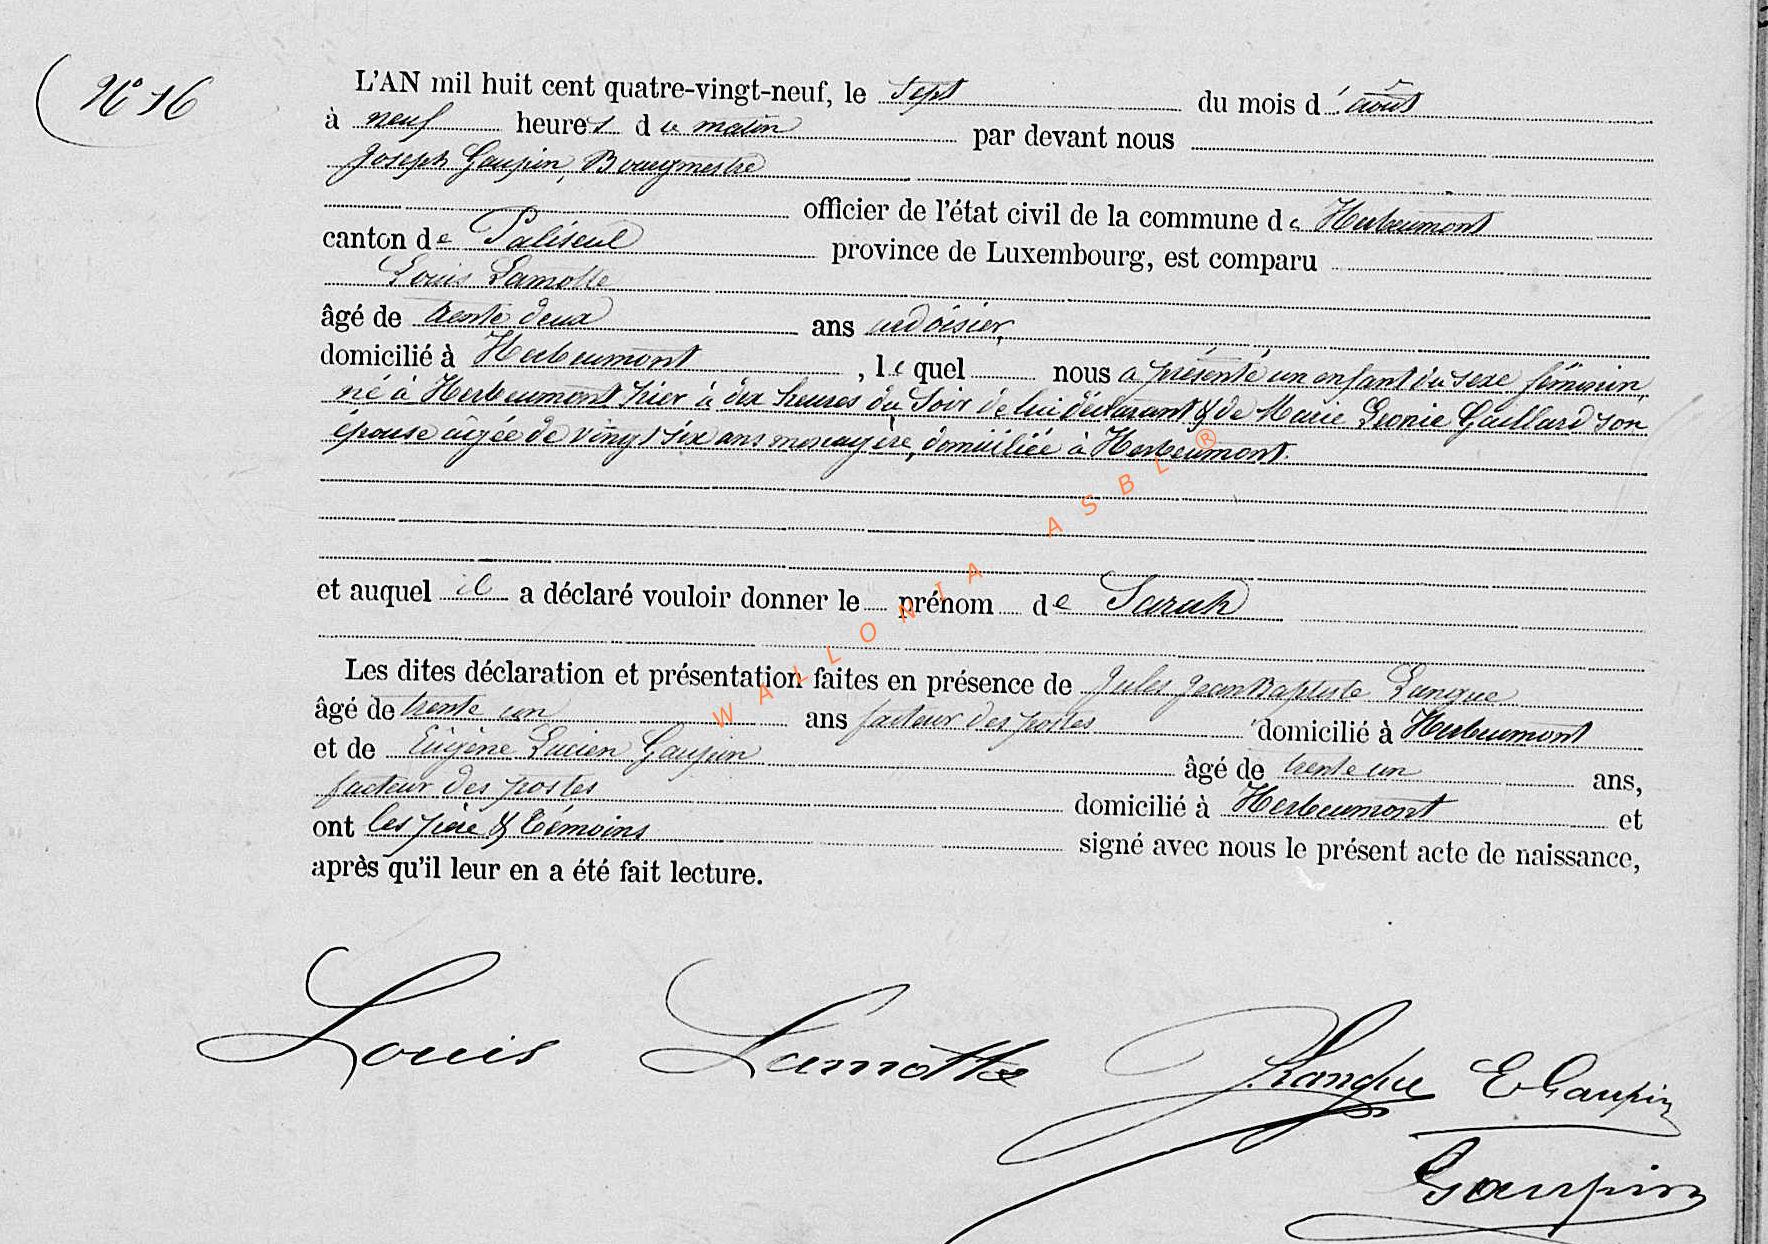 N° 16
L'AN mil huit cent quatre-vingt-neuf, le sept du mois d' août
à neuf heures du matin par devant nous
Joseph Gaupin, Bourgmestre
officier de l'état civil de la commune de Herbeumont
canton de Paliseul province de Luxembourg, est comparu
Louis Lamotte
âgé de trente deux ans ardoisier,
domicilié à Herbeumont, lequel nous a présenté un enfant du sexe féminin,
né à Herbeumont hier à dix heures du soir de lui déclarant & de Marie Leonie Gaillard son
épouse âgée de vingt six ans menagère, domiciliée à Herbeumont.
et auquel il a déclaré vouloir donner le prénom de Sarah
Les dites déclaration et présentation faites en présence de Jules Jean Baptiste Langue
âgé de trente un ans facteur des postes domicilié à Herbeumont
et de Eugène Lucien Gaupin âgé de trente un ans,
facteur des postes domicilié à Herbeumont et
ont les père & témoins signé avec nous le présent acte de naissance,
après qu'il leur en a été fait lecture.
WALLONIA ASBL ®
Louis Lamotte J. Langue E Gaupin
Gaupin